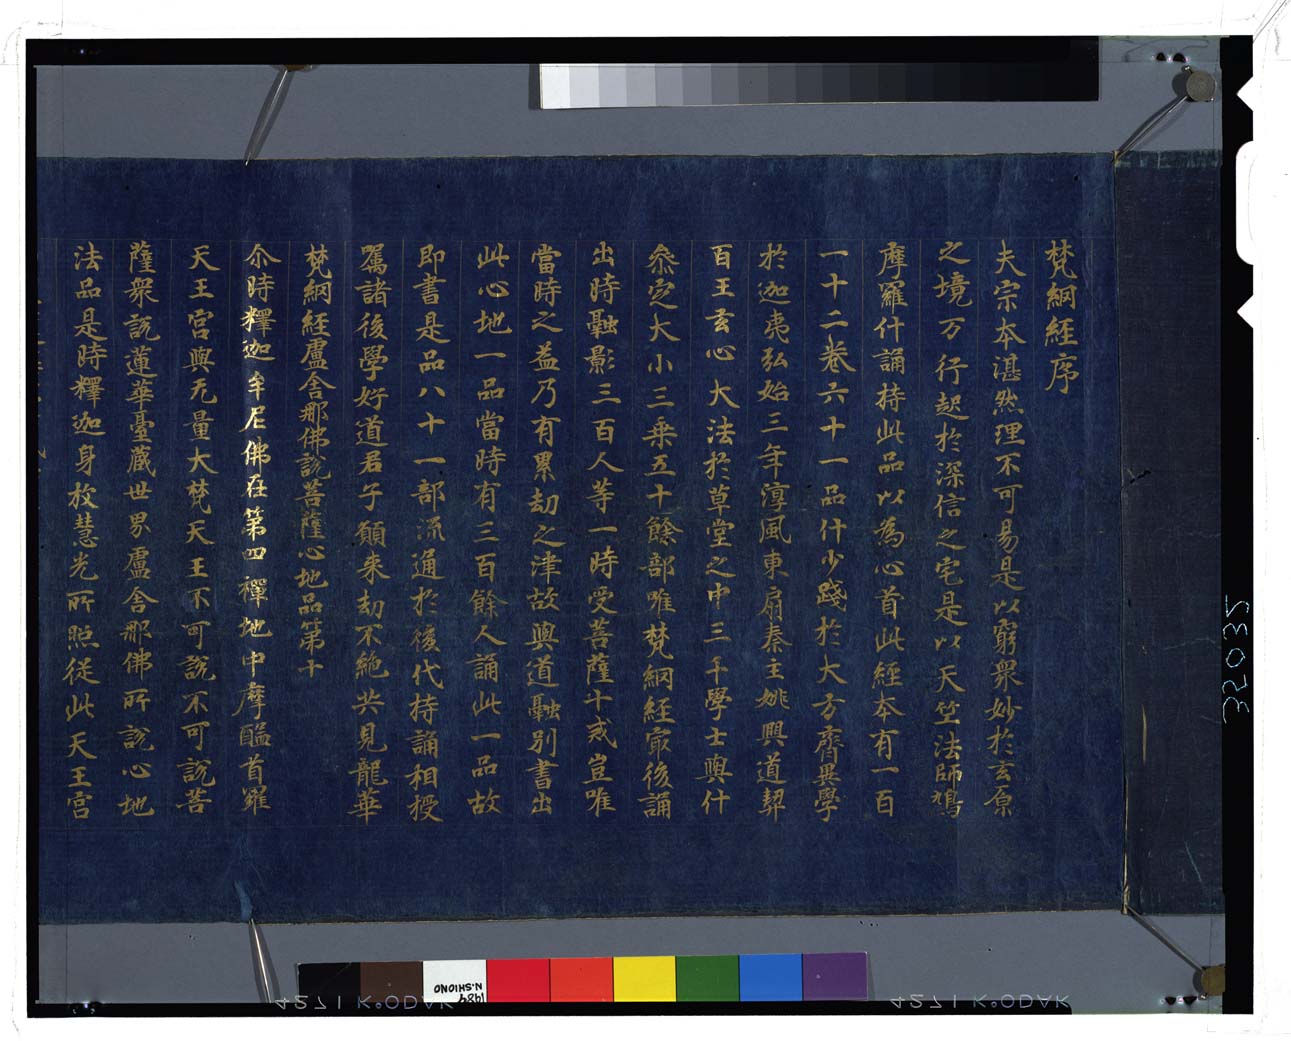 梵網經序
夫宗本湛然理不可易是以窮衆妙於玄原
之境万行起於深信之宅是以天竺法師鳩
摩羅什誦持此品以為心首此經本有一百
一十二卷六十一品什少踐於大方齊異學
於迦夷弘始三年淳風東扇秦主姚興道契
百王玄心大法於草堂之中三千學士與什
叅定大小三乘五十餘部唯梵網經宼後誦
出時融影三百人等一時受菩薩十戒豈唯
當時之益乃有累劫之津故與道融別書出
此心地一品當時有三百餘人誦此一品故
即書是品八十一部流通於後代持誦相授
属諸後學好道君子願來劫不絶共見龍華
梵網經盧舍那佛說菩薩心地品第十
尒時釋迦牟尼佛在第四禪地中摩醯首羅
天王宮與无量大梵天王不可說不可說菩
薩衆說蓮華臺藏世界盧舍那佛所說心地
法品是時釋迦身放慧光所照從此天王宮
32035
1984
N.SHIONO
4271 KODAK
4271 KODAK